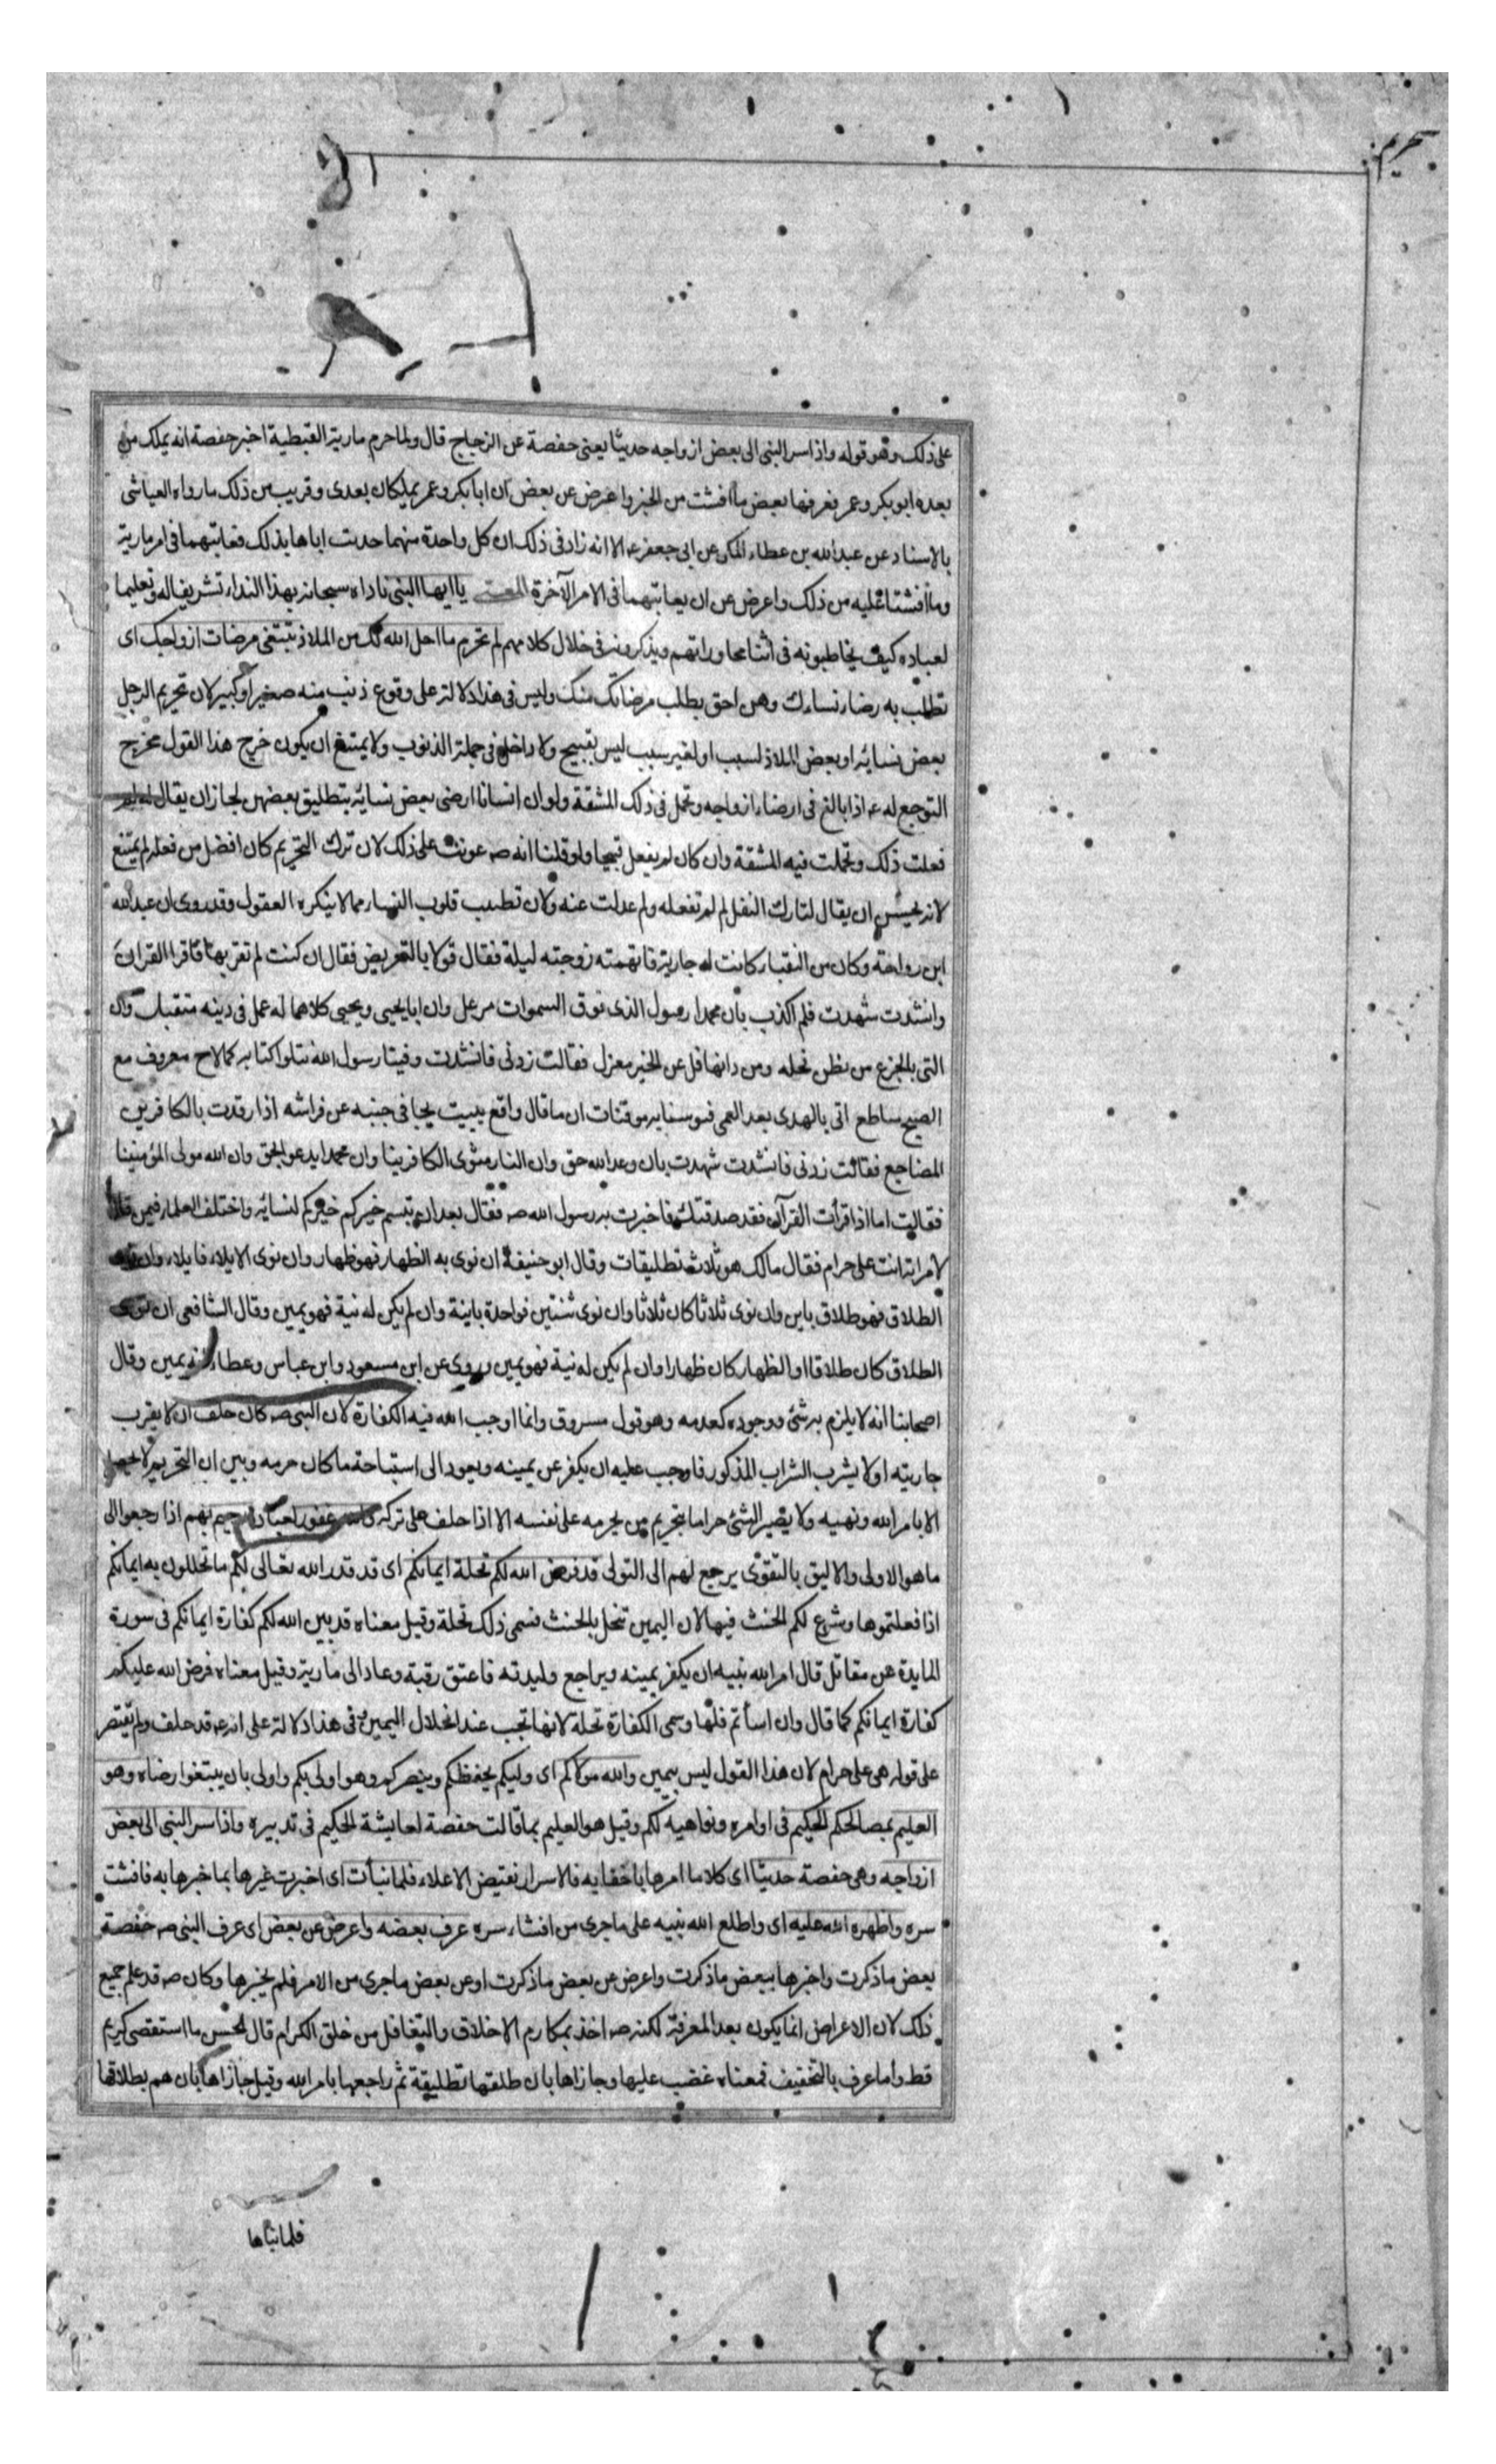 تحريم
على ذلك وهو قوله واذ اسر النبى الى بعض ازواجه حديثا يعنى حفصة عن الزجاج قال ولما حرم مارية القبطية اخبر حفصة انه يملك من
بعده ابو بكر وعمر فعرفها بعض ما افشت من الخبر واعرض عن بعض ان ابا بكر وعمر يملكان بعدى وقريب من ذلك ما رواه العياشى
بالاسناد عن عبد الله بن عطاء المكى عن ابى جعفر عم الا انه زاد فى ذلك ان كل واحدة منهما حدثت اباها بذلك فعاتبهما فى امر مارية
وما افشتا عليه من ذلك واعرض عن ان يعاتبهما فى الامر الآخر المعنى يا ايها النبى ناداه سبحانه بهذا النداء تشريفا له وتعليما
لعباده كيف يخاطبونه فى اثناء محاوراتهم ويذكرونه فى خلال كلامهم لم تحرم ما احل الله لك من الملاذ تبتغى مرضات ازواجك اى
تطلب به رضاء نساءك وهن احق بطلب مرضاتك منك وليس فى هذا دلالة على وقوع ذنب منه صغير او كبير لان تحريم الرجل
بعض نسائه او بعض الملاذ لسبب او لغير سبب ليس بقبيح ولا داخل فى جملة الذنوب ولا يمتنع ان يكون خرج هذا القول مخرج
التوجع له عم اذا بالغ فى ارضاء ازواجه وتحمل فى ذلك المشقة ولو ان انسانا ارضى بعض نسائه بتطليق بعضهن لجاز ان يقال له لم
فعلت ذلك وتحملت فيه المشقة وان كان لم يفعل قبيحا ولو قلنا انه صه عوتب على ذلك لان ترك التحريم كان افضل من فعله لم يمتنع
لانه يحسن ان يقال لتارك النفل لم لم تفعله ولم عدلت عنه ولان تطييب قلوب النساء مما لا ينكره العقول وقد روى ان عبد الله
ابن رواحة وكان من النقباء كانت له جارية فاتهمته زوجته ليلة فقال قولا بالتعريض فقال ان كنت لم تقربها فاقرا القران
وانشدت شهدت فلم اكذب بان محمدا رسول الذى فوق السموات من عل وان ابا يحيى ويحيى كلاهما له عمل فى دينه متقبل وان
التى بالجزع من بطن نخله ومن دانها فل عن الخير معزل فقالت زدنى فانشدت وفينا رسول الله نتلوا كتابه كما لاح معروف مع
الصبح ساطع اتى بالهدى بعد العمى فنوسنا به موقنات ان ما قال واقع يبيت يجافى جنبه عن فراشه اذا رقدت بالكافرين
المضاجع فقالت زدنى فانشدت شهدت بان وعد الله حق وان النار مثوى الكافرينا وان محمدا يدعو بحق وان الله مولى المؤمنينا
فقالت اما اذا قرأت القرآن فقد صدقتك فاخبرت به رسول الله صه فقال بعد ان تبسم خيركم خيركم لنسائه واختلف العلماء فيمن قال
لامراته انت على حرام فقال مالك هو ثلاث تطليقات وقال ابو حنيفة ان نوى به الظهار فهو ظهار وان نوى الايلاء فايلاء وان نوى
الطلاق فهو طلاق باين وان نوى ثلاثا كان ثلاثا وان نوى ثنتين فواحدة باينة وان لم يكن له نية فهو يمين وقال الشافعى ان نوى
الطلاق كان طلاقا او الظهار كان ظهارا وان لم يكن له نية فهو يمين وروى عن ابن مسعود وابن عباس وعطاء انه يمين وقال
اصحابنا انه لا يلزم به شئ ووجوده كعدمه وهو قول مسروق وانما اوجب الله فيه الكفارة لان النبى صه كان حلف ان لا يقرب
جاريته او لا يشرب الشراب المذكور فاوجب عليه ان يكفر عن يمينه ويعود الى استباحة ما كان حرمه وبين ان التحريم لا يحصل
الا بامر الله ونهيه ولا يصير الشئ حراما بتحريم من يحرمه على نفسه الا اذا حلف على تركه والله غفور لعباده رحيم بهم اذا رجعوا الى
ما هو الاولى والاليق بالتقوى يرجع لهم الى التولى قد فرض الله لكم تحلة ايمانكم اى قد قدر الله تعالى لكم ما تحللون به ايمانكم
اذا فعلتموها وشرع لكم الحنث فيها لان اليمين تنحل بالحنث فسمى ذلك تحلة وقيل معناه قد بين الله لكم كفارة ايمانكم فى سورة
المايدة عن مقاتل قال امر الله نبيه ان يكفر يمينه ويراجع وليدته فاعتق رقبة وعاد الى مارية وقيل معناه فرض الله عليكم
كفارة ايمانكم كما قال وان اسأتم فلها وسمى الكفارة تحلة لانها تجب عند انحلال اليمين وفى هذا دلالة على انه عم قد حلف ولم يقتصر
على قوله هى على حرام لان هذا القول ليس بيمين والله مولاكم اى وليكم يحفظكم وينصركم وهو اولى بكم واولى بان يبتغوا رضاه وهو
العليم بمصالحكم الحكيم فى اوامره ونواهيه لكم وقيل هو العليم بما قالت حفصة لعايشة الحكيم فى تدبيره واذ اسر النبى الى بعض
ازواجه وهى حفصة حديثا اى كلاما امرها باخفايه فالاسرار نقيض الاعلاء فلما نبأت اى اخبرت غيرها بما خبرها به فافشت
سره واظهره الله عليه اى واطلع الله نبيه على ما جرى من افشاء سره عرف بعضه واعرض عن بعض اى عرف النبى صه حفصة
بعض ما ذكرت واخبرها ببعض ما ذكرت واعرض عن بعض ما ذكرت او عن بعض ما جرى من الامر فلم يخبرها وكان صه قد علم جميع
ذلك لان الاعراض انما يكون بعد المعرفة لكنه صه اخذ بمكارم الاخلاق والتغافل من خلق الكرام قال الحسن ما استقصى كريم
قط واما عرف بالتخفيف فمعناه غضب عليها وجازاها بان طلقها تطليقة ثم راجعها بامر الله وقيل جازاها بان هم بطلاقها
فلما نبأها